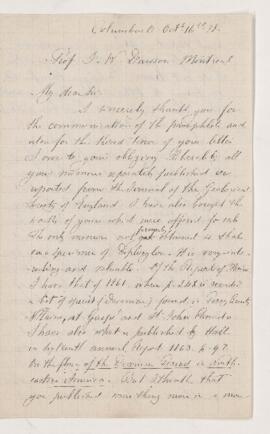 Columbus O. Oct. 16th 71.
Prof. J. W. Dawson Montreal
My dear Sir
I sincerely thank you for
the communication of the pamphlets and
also for the kind tenor of your letter
I owe to your obliging
your memoirs separately published
reported from the Journal of the Geological
Society of England. I have also bought the
parts of yours which were offered for sale
The only memoir not formerly obtained is that
on Sporangites. It is very inte-
resting and valuable. Of the Report of Maine
I have that of 1861 where p. 248 is
a list of species (Devonian) found in Perry County
Maine, at Gaspé and St. John
I have also what is published by Hall
in sixteenth annual Report 1863. p. 92.
On the flora of the Devonian Period in north
eastern America. But I think that
you published something more in a more